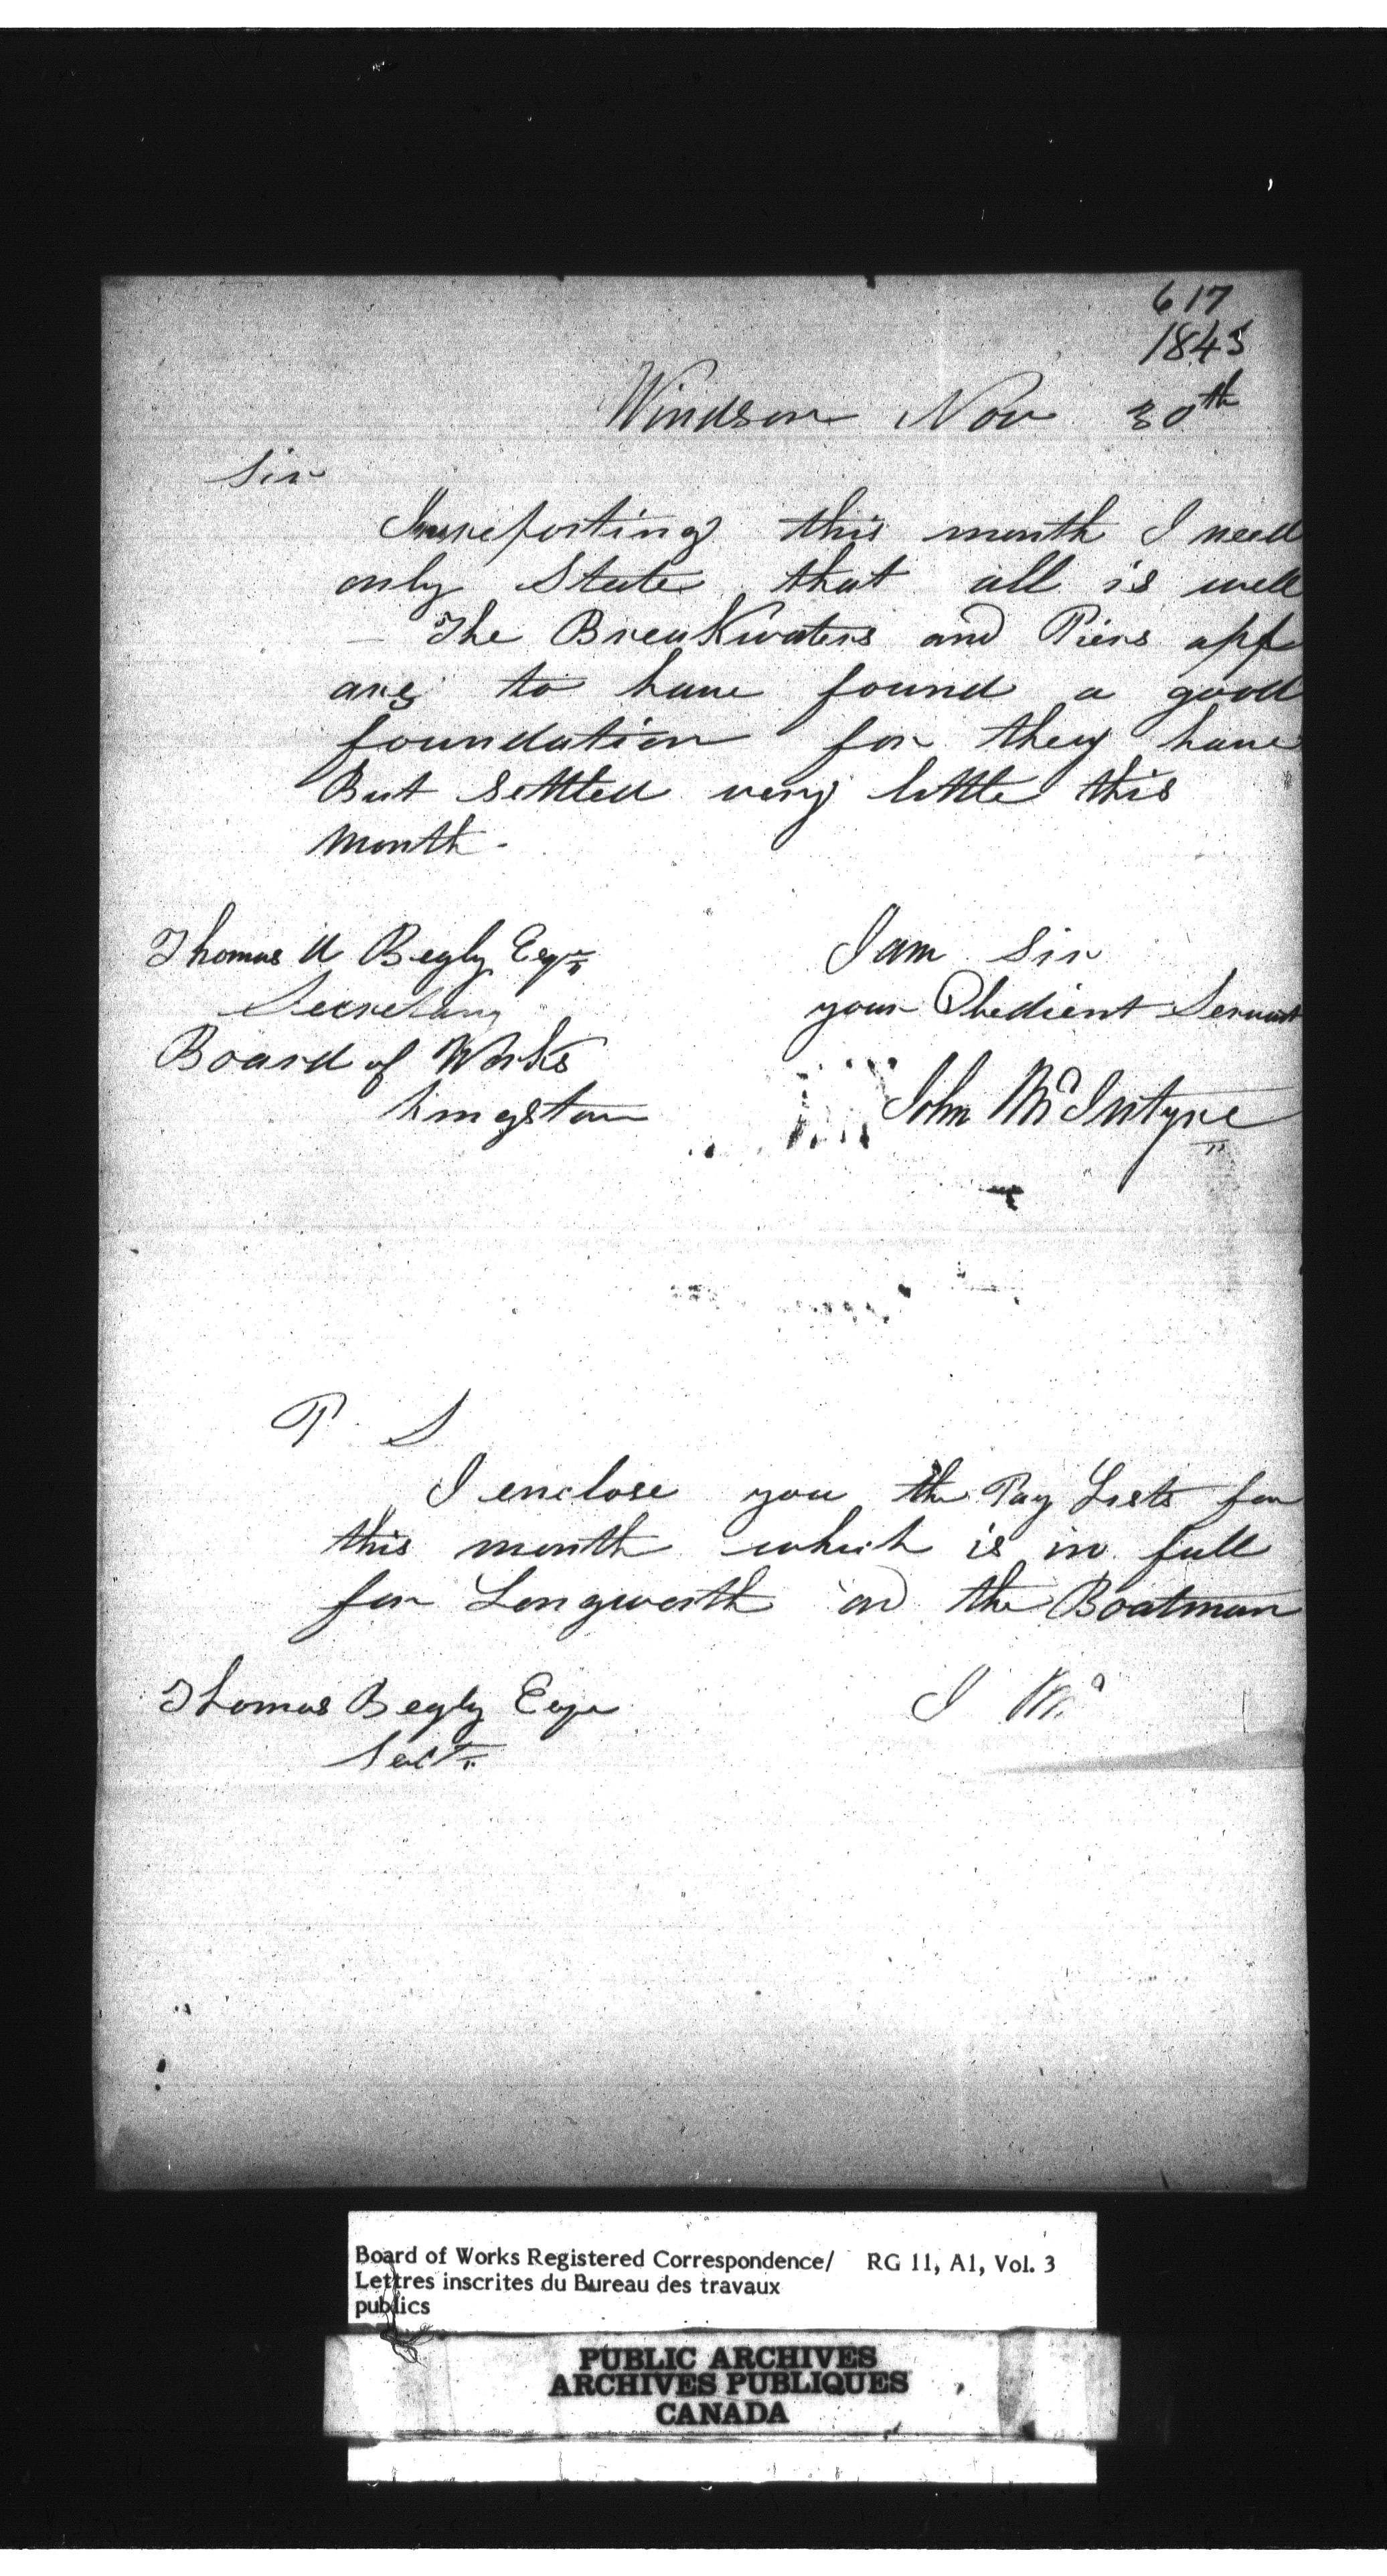 617
1843
Windsor Nov 30th
Sir
In reporting this month I need
only State that all is well
— The BreaKwaters and Piers app
ars to have found a good
foundation for they have
But settled very little this
month.
Thomas A Begly Esqr
Secretary
Board of Works
Kingston
I am Sir
your Obedient Servant
John McIntyre
P. S
I enclose you the Pay Lists for
this month which is in full
for Longworth and the Boatman
Thomas Begly Esqr
Secty
J Mc
Board of Works Registered Correspondence/ RG 11, A1, Vol. 3
Lettres inscrites du Bureau des travaux
publics
PUBLIC ARCHIVES
ARCHIVES PUBLIQUES
CANADA